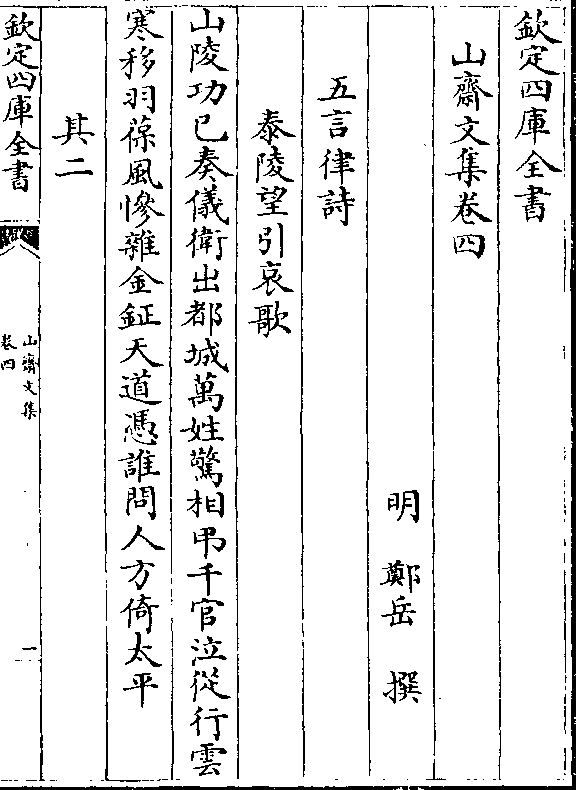 欽定四庫全書
山齋文集卷四
明 鄭岳 撰
五言律詩
泰陵望引哀歌
山陵功已奏儀衛出都城萬姓驚相弔千官泣從行雲
寒移羽葆風慘雜金鉦天道憑誰問人方倚太平
其二
欽定四庫全書
山齋文集
卷四
一